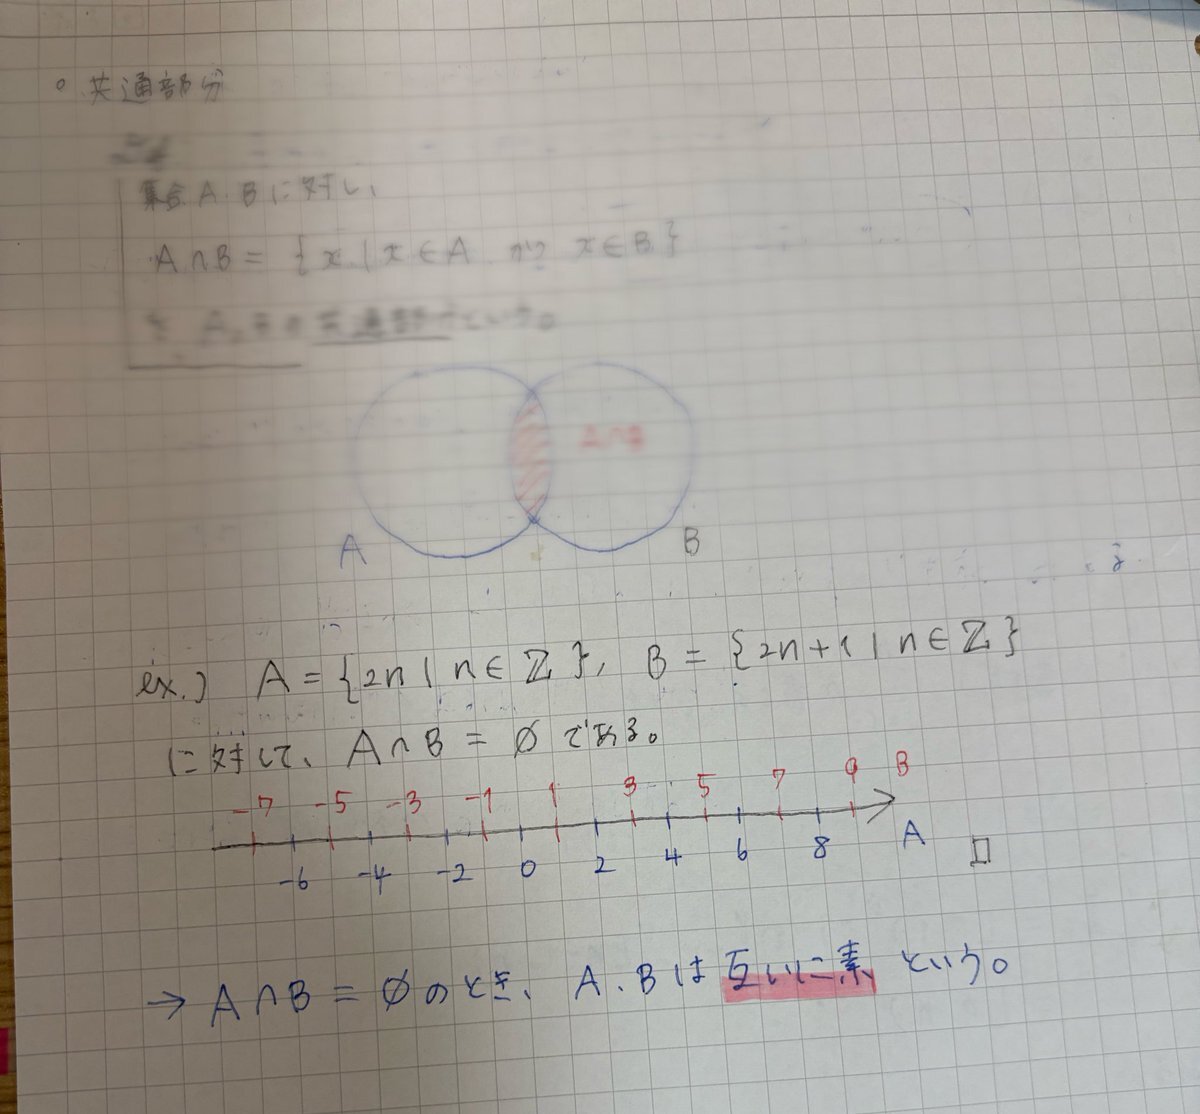 ○ 共通部分
集合 A, B に対し、
A∩B = {x | x∈A かつ x∈B}
を A, Bの共通部分という。
A∩B
A B
ex.) A = {2n | n∈ℤ}, B = {2n+1 | n∈ℤ}
に対して、A∩B = ∅ である。
-7 -5 -3 -1 1 3 5 7 9 B
-6 -4 -2 0 2 4 6 8 A □
→ A∩B = ∅ のとき、A, B は 互いに素 という。